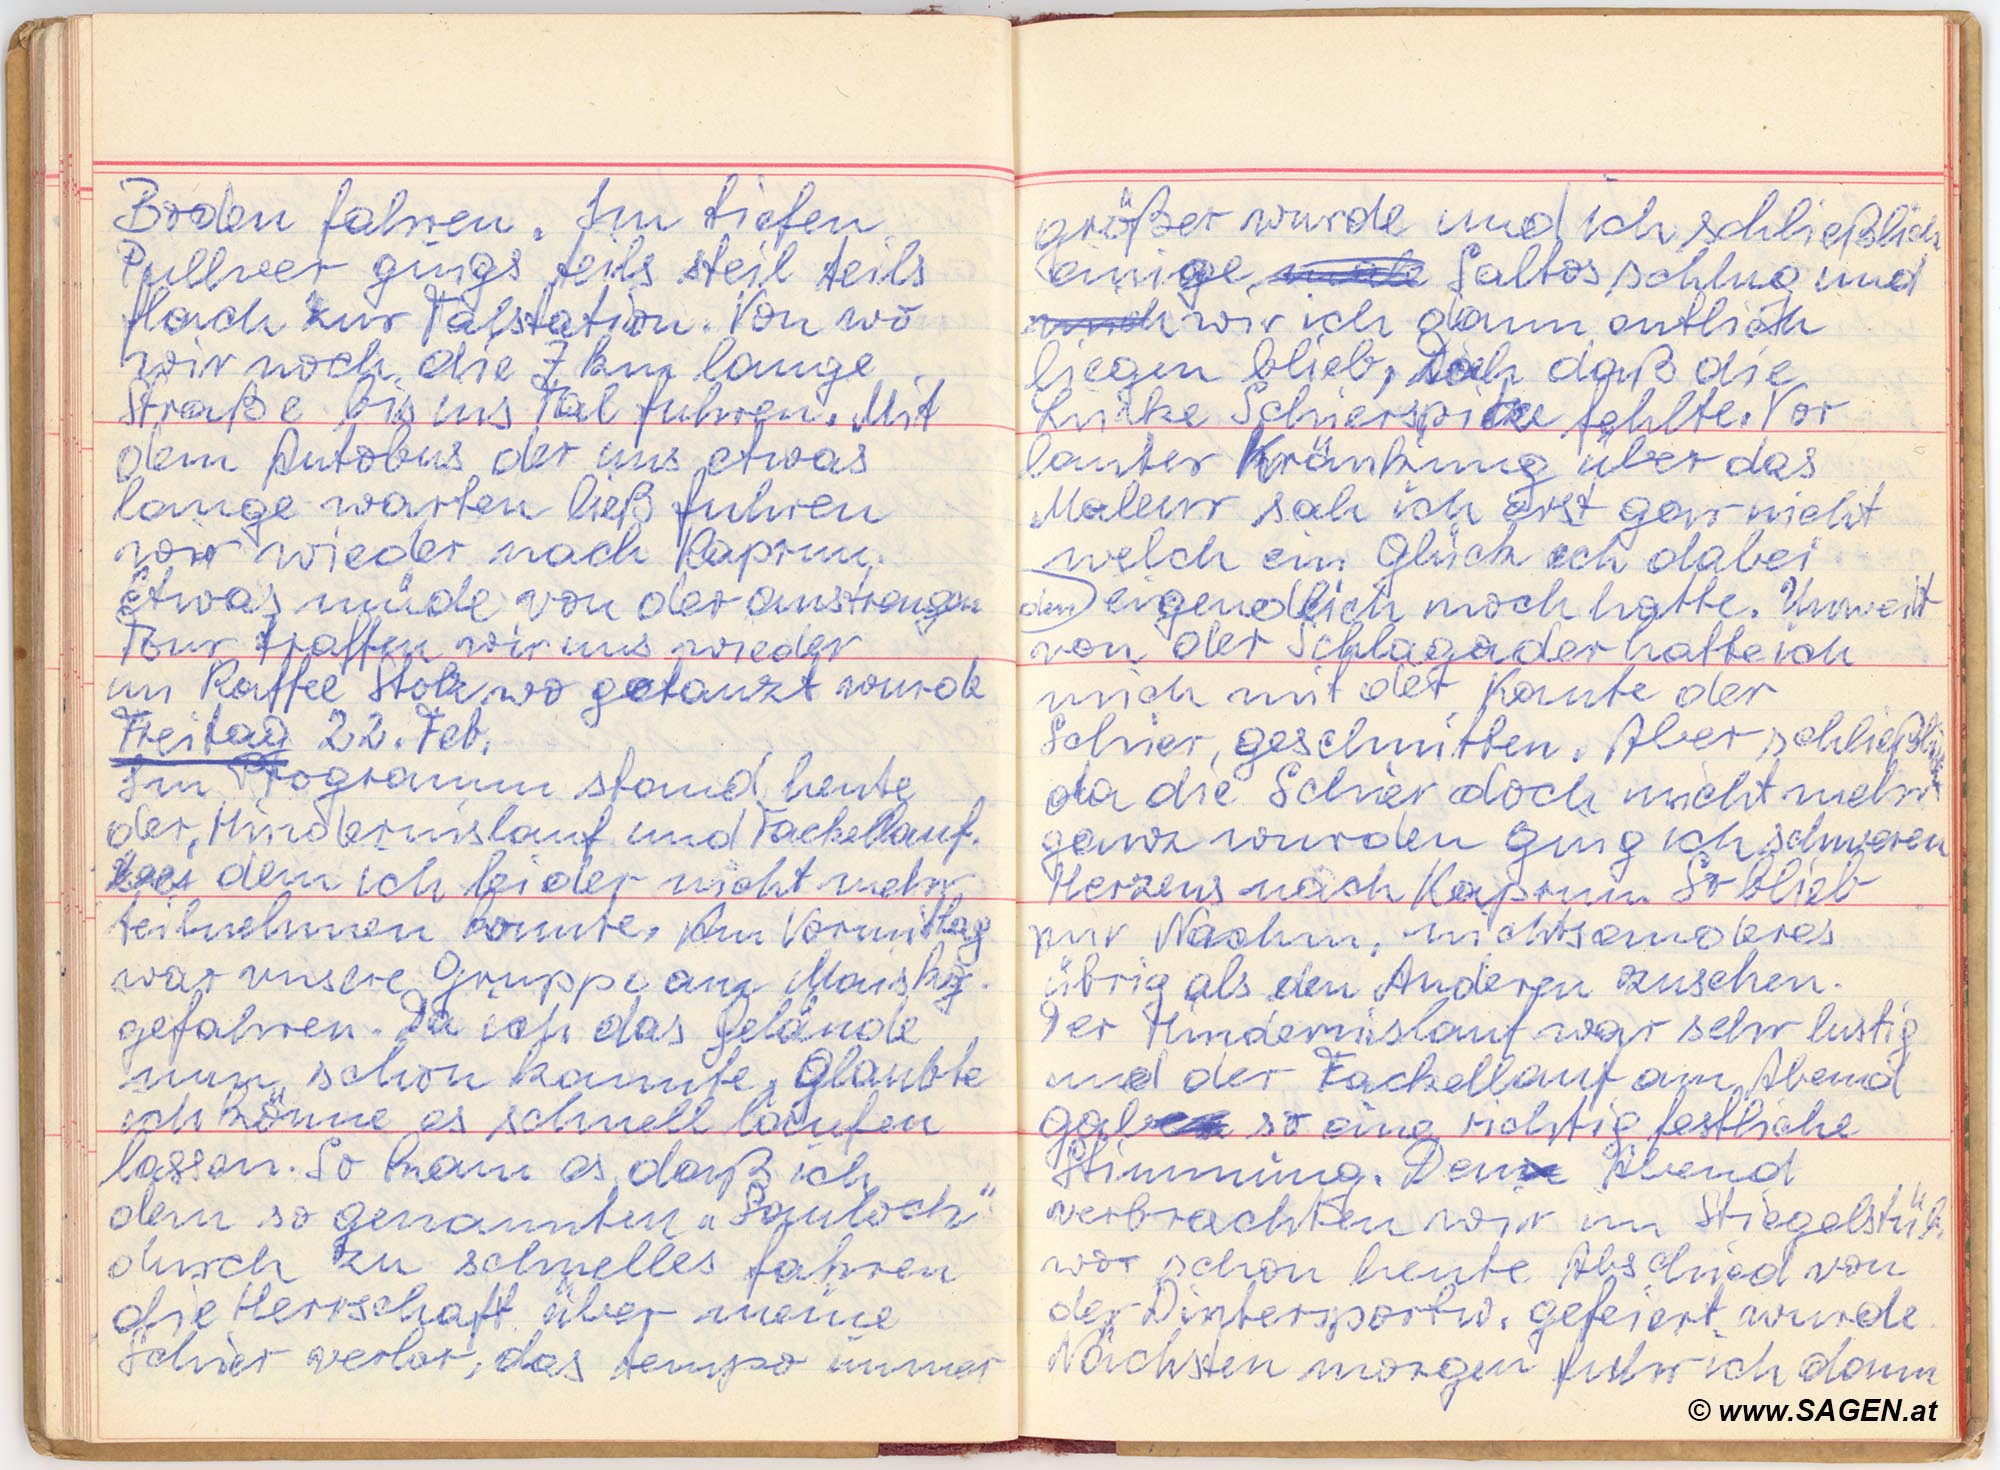 Boden fahren. Im tiefen
Pullver gings teils steil teils
flach zur Talstation. Von wo
wir noch die 7 km lange
Straße bis ins Tal fuhren. Mit
dem Autobus der uns etwas
lange warten ließ fuhren
wir wieder nach Kaprun.
Etwas müde von der anstrengen
Tour traffen wir uns wieder
im Kaffee Stolz, wo getanzt wurde
Freitag 22. Feb.
Im Programm stand heute
der, Hindernislauf und Fackellauf.
dem ich leider nicht mehr
teilnehmen konnte. Am Vormittag
war unsere Gruppe am Maishg.
gefahren. Da ich das Gelände
nun schon kannte, glaubte
ich könne es schnell laufen
lassen. So kam es daß ich
dem so genannten „Sauloch“
durch zu schnelles fahren
die Herrschaft über meine
Schier verlor, das tempo immer
größer wurde und ich schließlich
einige Saltos schlug und
wir ich dann entlich
liegen blieb, sah daß die
Linke Schierspitze fehlte. Vor
lauter Kränkung über das
Maleur sah ich erst gar nicht
welch ein Glück ich dabei
den eigendlich noch hatte. Unweit
von der Schlagader hatte ich
mich mit der Kante der
Schier, geschnitten. Aber schließlich
da die Schier doch nicht mehr
ganz wurden ging ich schweren
Herzens nach Kaprun. So blieb
mir Nachm, nichts anderes
übrig als den Anderen zusehen.
Der Hindernislauf war sehr lustig
und der Fackellauf am Abend
gab so eine richtig festliche
Stimmung. Den Abend
verbrachten wir im Stiegelstüb.
wo schon heute Abschied von
der Wintersportw. gefeiert wurde.
Nächsten morgen fuhr ich dann
© www.SAGEN.at